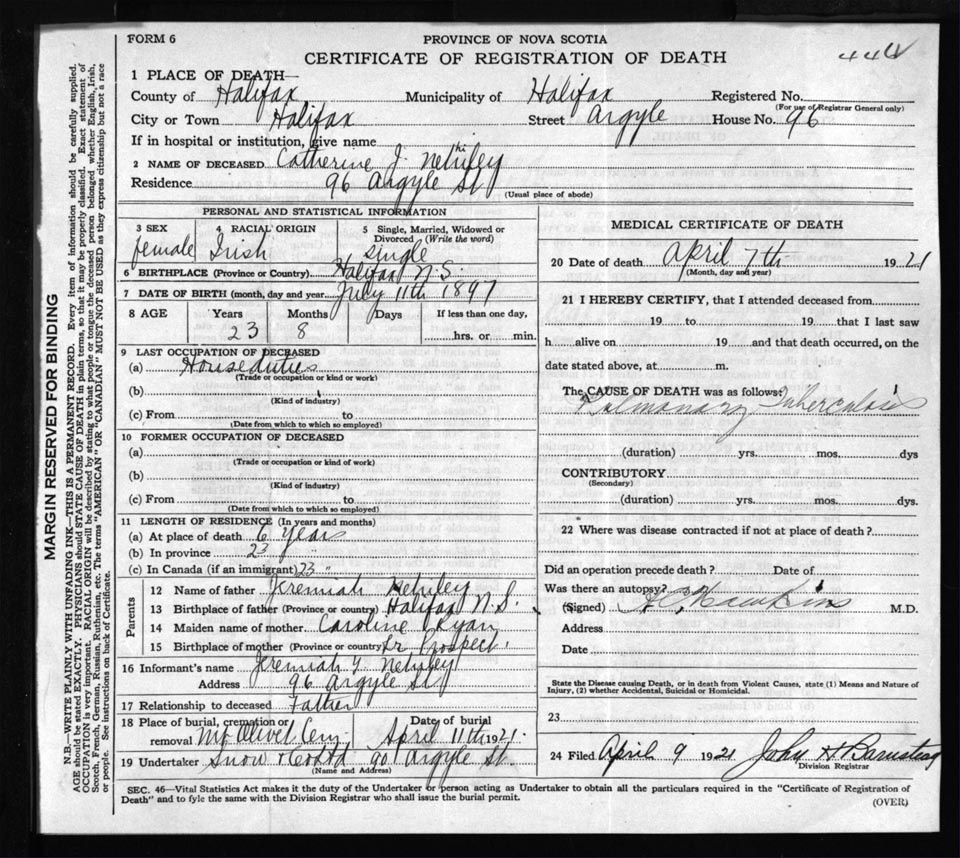 FORM 6
PROVINCE OF NOVA SCOTIA
CERTIFICATE OF REGISTRATION OF DEATH
1 PLACE OF DEATH—
County of Halifax Municipality of Halifax Registered No.
(For use of Registrar General only)
City or Town Halifax Street Argyle House No. 96
If in hospital or institution, give name
2 NAME OF DECEASED Catherine J.
Residence 96 Argyle St
(Usual place of abode)
PERSONAL AND STATISTICAL INFORMATION
3 SEX 4 RACIAL ORIGIN 5 Single, Married, Widowed or Divorced (Write the word)
female Irish single
6 BIRTHPLACE (Province or Country) Halifax N.S.
7 DATE OF BIRTH (month, day and year July 11th 1897
8 AGE Years Months Days If less than one day,
23 8 hrs. or min.
9 LAST OCCUPATION OF DECEASED
(a) House duties
(Trade or occupation or kind or work)
(b)
(Kind of industry)
(c) From to
(Date from which to which so employed)
10 FORMER OCCUPATION OF DECEASED
(a)
(Trade or occupation or kind of work)
(b)
(Kind of industry)
(c) From to
(Date from which to which so employed)
11 LENGTH OF RESIDENCE (In years and months)
(a) At place of death 6 years
(b) In province 23 "
(c) In Canada (if an immigrant) 23 "
Parents
12 Name of father Jeremiah
13 Birthplace of father (Province or country) Halifax N.S.
14 Maiden name of mother Caroline Ryan
15 Birthplace of mother (Province or country Lr Prospect
16 Informant's name Jeremiah
Address 96 Argyle St
17 Relationship to deceased Father
18 Place of burial, cremation or removal Mt Olivet Cem Date of burial April 11th 1921.
19 Undertaker Snow 90 Argyle St.
(Name and Address)
MEDICAL CERTIFICATE OF DEATH
20 Date of death April 7th 1921
(Month, day and year)
21 I HEREBY CERTIFY, that I attended deceased from
19 to 19 that I last saw
h alive on 19 and that death occurred, on the
date stated above, at m.
The CAUSE OF DEATH was as follows:
Pulmonary Tuberculosis
(duration) yrs. mos. dys
CONTRIBUTORY
(Secondary)
(duration) yrs. mos. dys.
22 Where was disease contracted if not at place of death?
Did an operation precede death? Date of
Was there an autopsy?
(Signed) Hawkins M.D.
Address
Date
State the Disease causing Death, or in death from Violent Causes, state (1) Means and Nature of
Injury, (2) whether Accidental, Suicidal or Homicidal.
23
24 Filed April 9 1921 John H Barnstead
Division Registrar
SEC. 46—Vital Statistics Act makes it the duty of the Undertaker or person acting as Undertaker to obtain all the particulars required in the "Certificate of Registration of
Death" and to fyle the same with the Division Registrar who shall issue the burial permit.
(OVER)
MARGIN RESERVED FOR BINDING
N.B.—WRITE PLAINLY WITH UNFADING INK—THIS IS A PERMANENT RECORD. Every item of information should be carefully supplied.
AGE should be stated EXACTLY. PHYSICIANS should STATE CAUSE OF DEATH in plain terms, so that it may be properly classified. Exact statement of
OCCUPATION is very important. RACIAL ORIGIN will be described by stating to what people or tongue the deceased person belonged whether English, Irish,
Scotch, French, German, Russian, Ruthenian, etc. The terms "AMERICAN" OR "CANADIAN" MUST NOT BE USED as they express citizenship but not a race
or people. See instructions on back of Certificate.